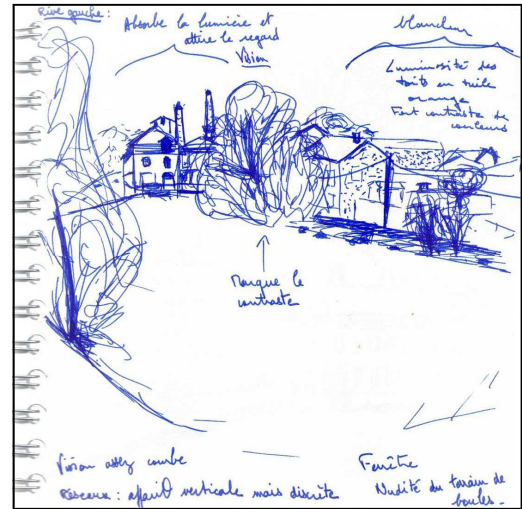 Rive gauche :
Absorbe la lumière et
attire le regard
Vision
blancheur
Luminosité des
toits en tuile
orange
Fort contraste de
couleurs
Marque le
contraste
Vision assez courbe
Réseaux : verticale mais discrète
Fenêtre
Nudité du terrain de
boules.